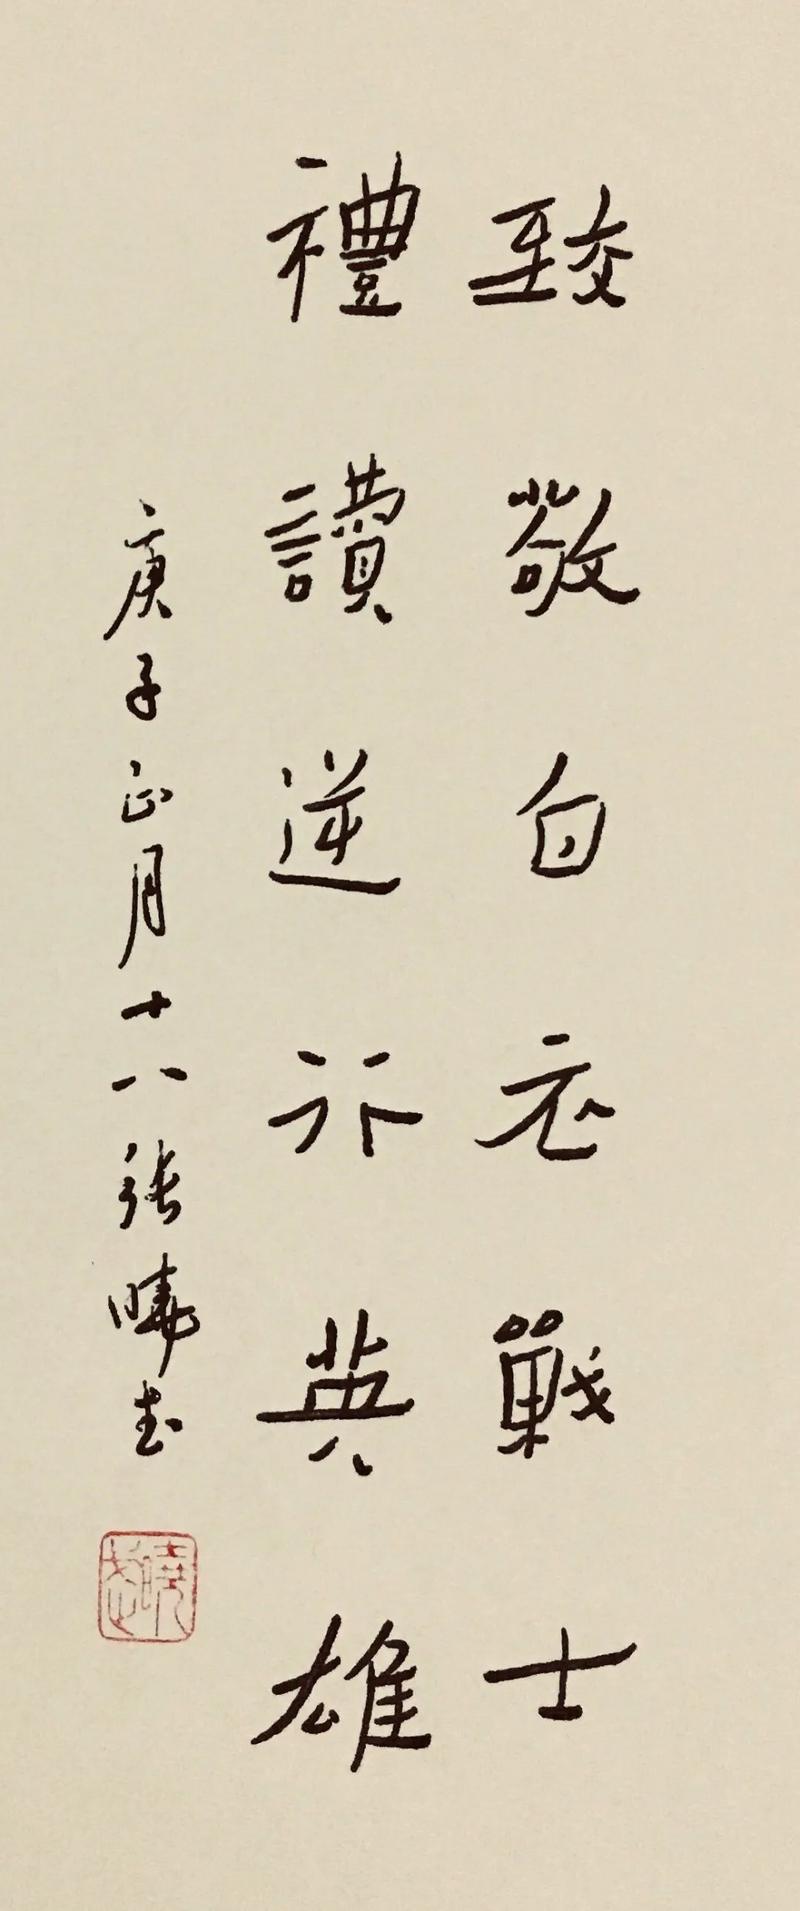 致敬白衣戰士
禮讚逆行英雄
庚子正月十八張曉